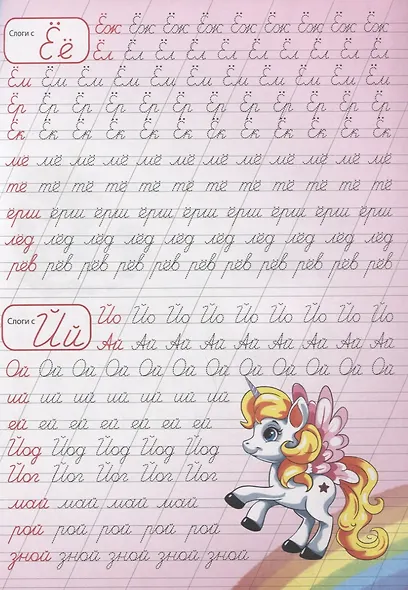 Слоги с Ёё
Ёж Ёж Ёж Ёж Ёж Ёж Ёж Ёж Ёж
Ёл Ёл Ёл Ёл Ёл Ёл Ёл Ёл Ёл Ёл
Ём Ём Ём Ём Ём Ём Ём Ём Ём Ём Ём
Ёр Ёр Ёр Ёр Ёр Ёр Ёр Ёр Ёр Ёр Ёр Ёр
Ёк Ёк Ёк Ёк Ёк Ёк Ёк Ёк Ёк Ёк Ёк Ёк
мё мё мё мё мё мё мё мё мё мё мё мё
тё тё тё тё тё тё тё тё тё тё тё тё
ёрш ёрш ёрш ёрш ёрш ёрш ёрш ёрш ёрш
лёд лёд лёд лёд лёд лёд лёд лёд лёд лёд
рёв рёв рёв рёв рёв рёв рёв рёв рёв рёв рёв
Слоги с Йй
Йо Йо Йо Йо Йо Йо Йо Йо Йо
Ай Ай Ай Ай Ай Ай Ай Ай Ай
Ой Ой Ой Ой Ой Ой Ой Ой Ой Ой Ой Ой
ий ий ий ий ий ий ий
ей ей ей ей ей ей ей
Йод Йод Йод Йод Йод
Йог Йог Йог Йог Йог
май май май май
рой рой рой рой рой
зной зной зной зной зной